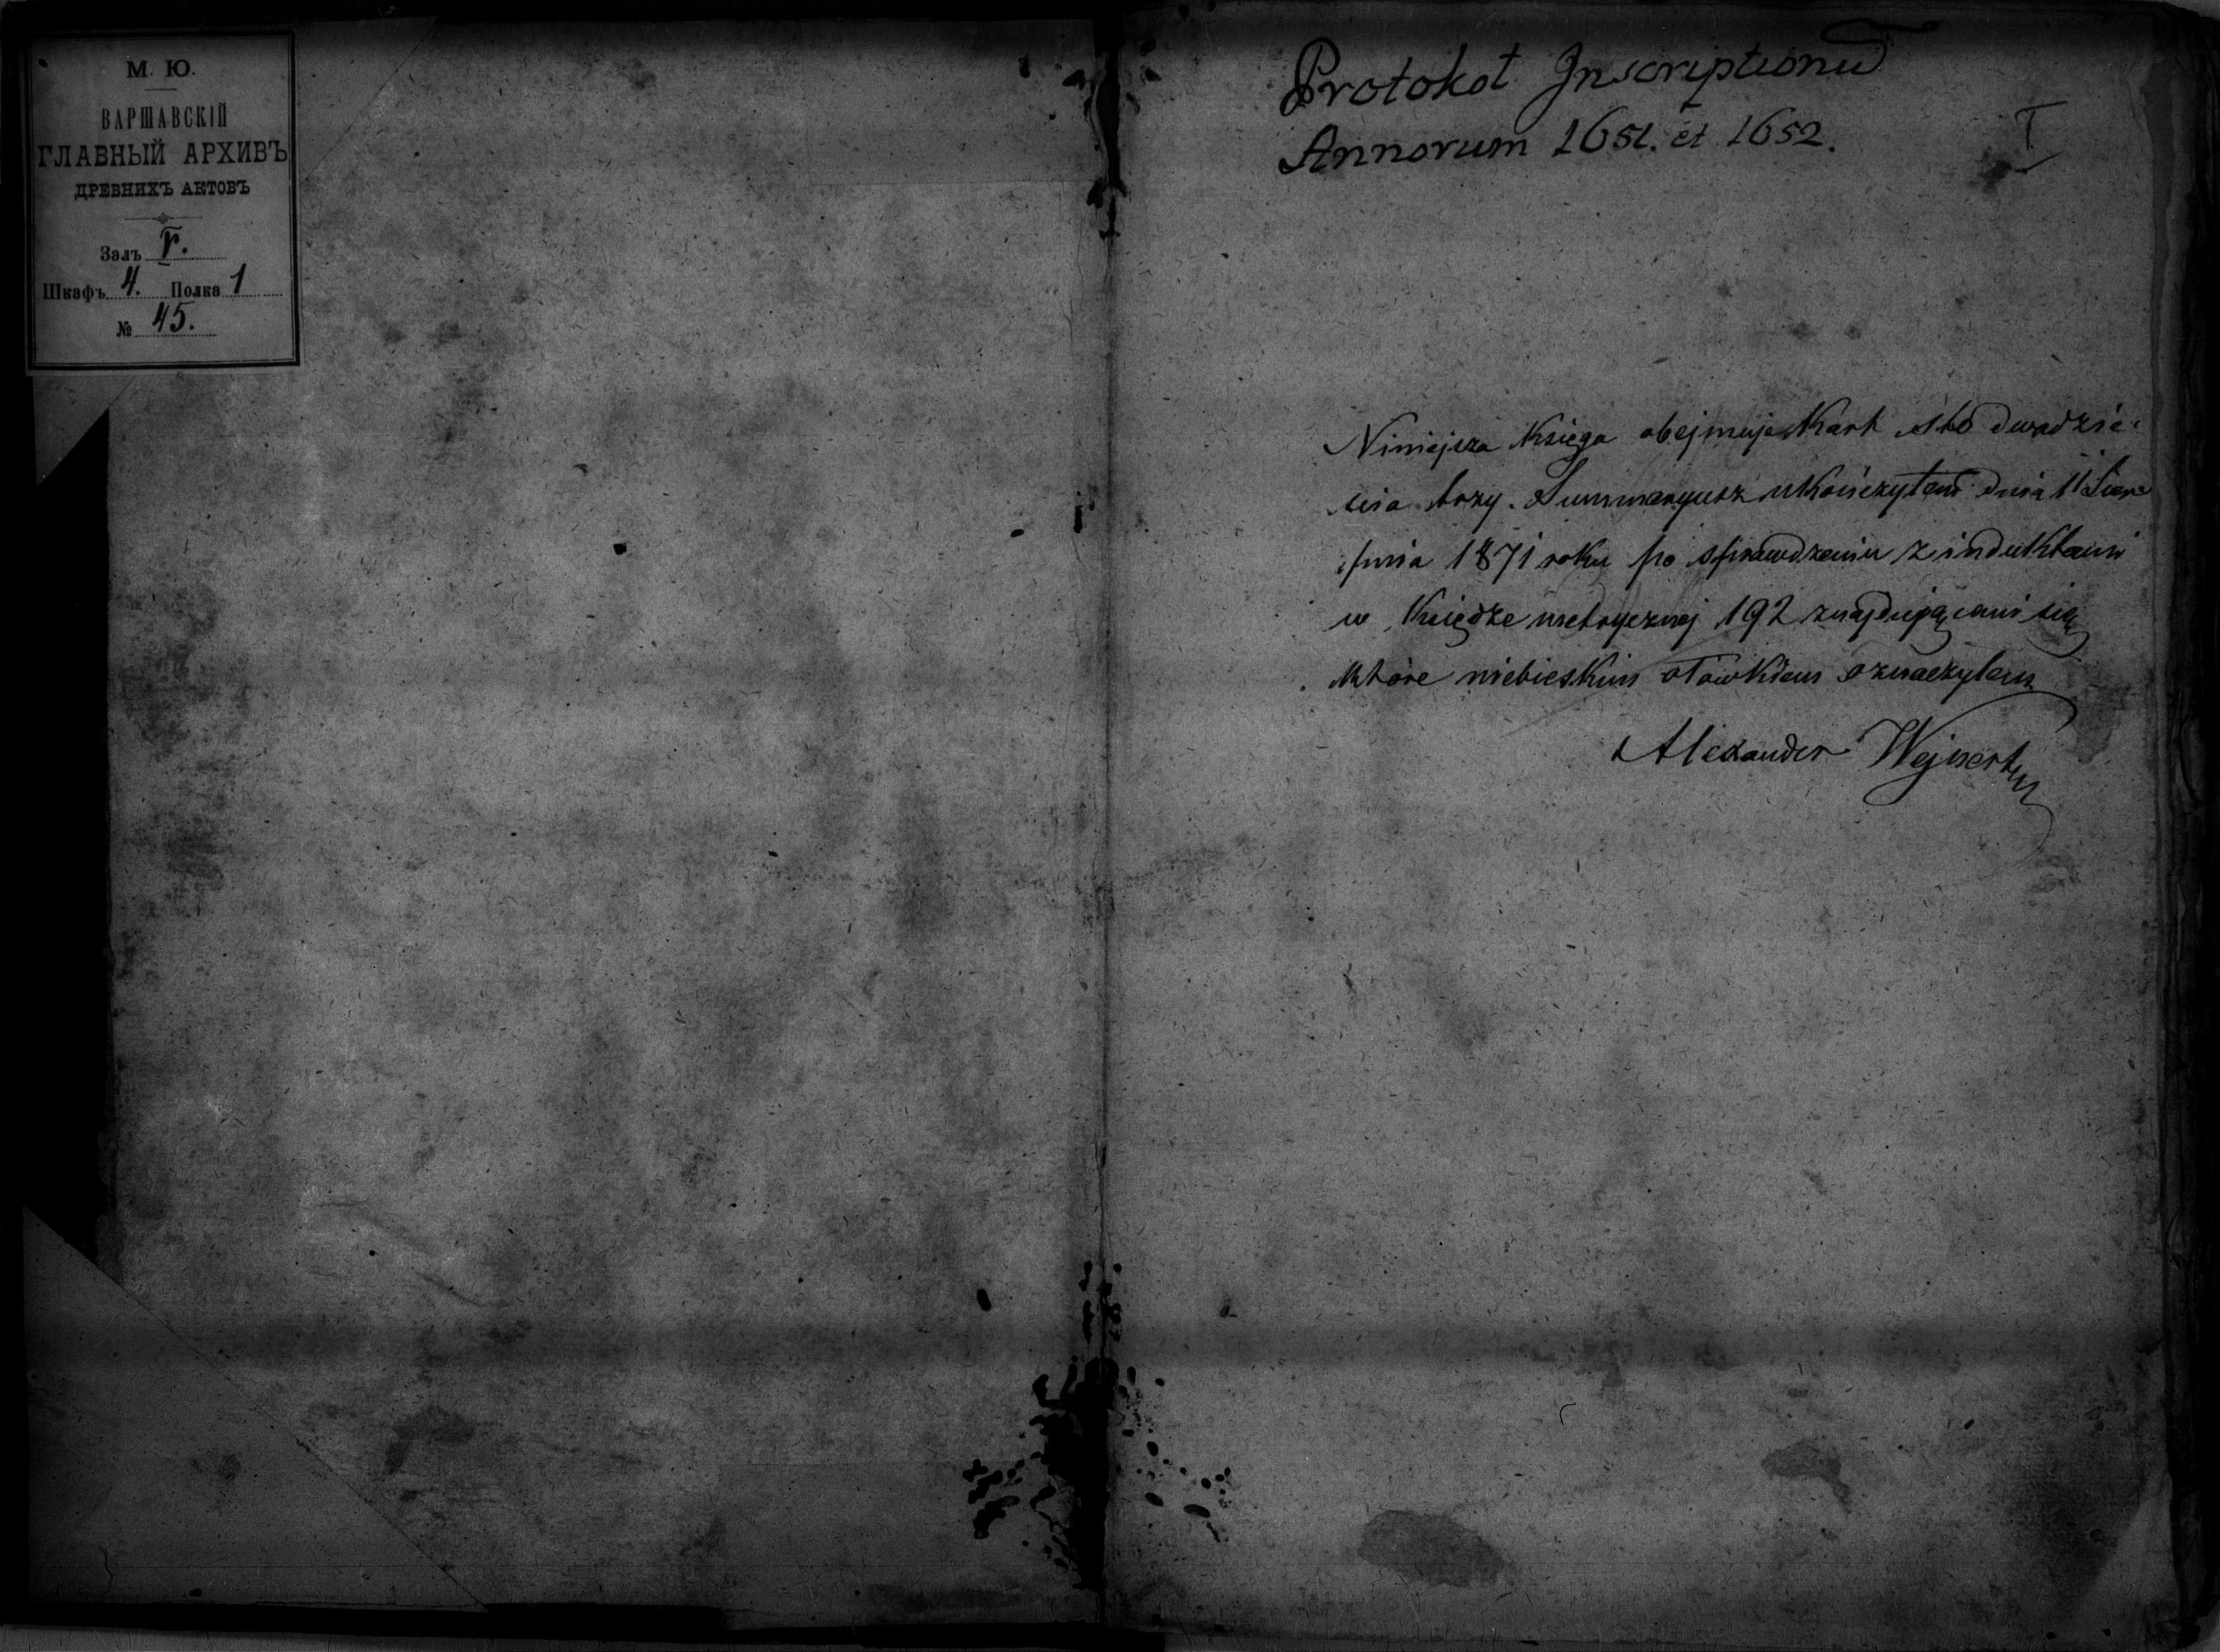 М. Ю.
ВАРШАВСКІЙ
ГЛАВНЫЙ АРХИВЪ
ДРЕВНИХЪ АКТОВЪ
Залъ V.
Шкафъ 4. Полка 1
№ 45.
Protokoł Inscriptionū
Annorum 1651. et 1652.
I
Niniejsza Księga obejmuje Kart sto dwadzie-
ścia trzy. Summaryusz ukończyłem dnia 11 Sier-
pnia 1871 roku po sprawdzeniu z induktami
w Księdze metrycznej 192 znajdującemi się
które niebieskim ołówkiem oznaczyłem
Alexander Wejnert